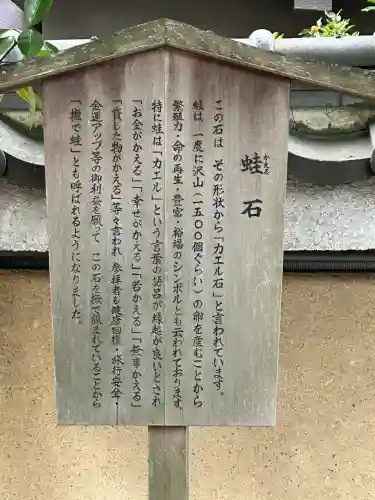 蛙石
かえる
この石は その形状から「カエル石」と言われています。
蛙は、一度に沢山(一五〇〇個ぐらい)の卵を産むことから
繁殖力・命の再生・豊富・裕福のシンボルとも云われております。
特に蛙は「カエル」という言葉の語呂が縁起が良いとされ
「お金がかえる」「幸せがかえる」「若かえる」「無事かえる」
「貸した物がかえる」等々言われ 参拝者も健康回復・旅行安全・
金運アップ等の御利益を願って この石を撫で読まれていることから
「撫で蛙」とも呼ばれるようになりました。